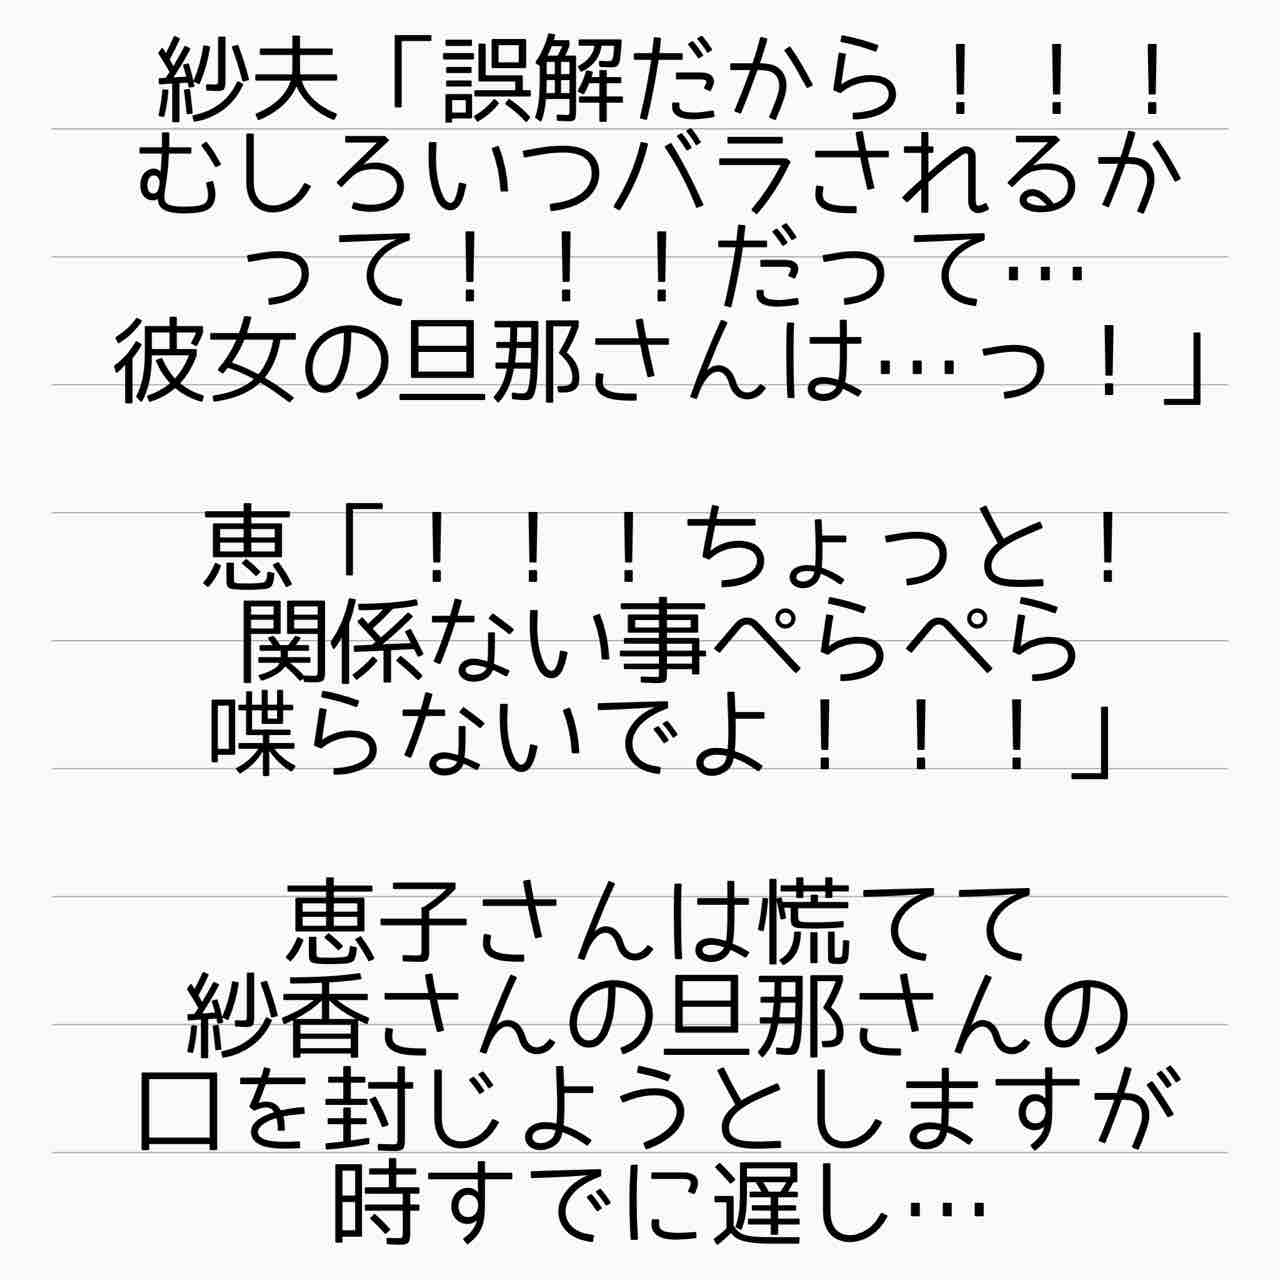 紗夫「誤解だから！！！
むしろいつバラされるか
って！！！だって…
彼女の旦那さんは…っ！」
恵「！！！ちょっと！
関係ない事ぺらぺら
喋らないでよ！！！」
恵子さんは慌てて
紗香さんの旦那さんの
口を封じようとしますが
時すでに遅し…